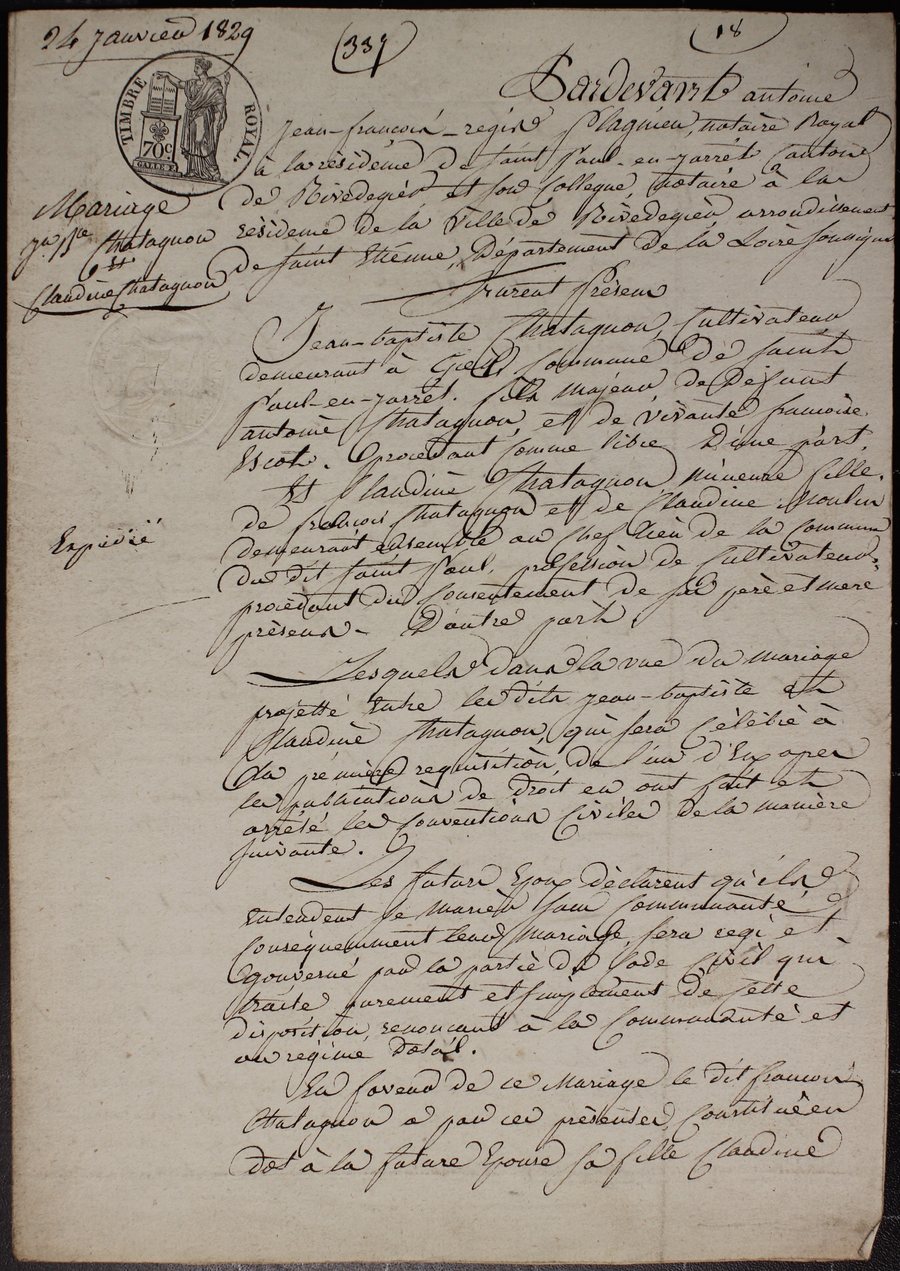 24 Janvier 1829
(337
18
TIMBRE ROYAL.
70c.
Pardevant antoine
Jean-françois-regis Plagnieu, notaire Royal
à la résidence de Saint Paul-en-jarrêt Canton
de Rivedegier et son Collegue, notaire à la
résidence de la Ville de Rivedegier, arrondissement
de Saint Etienne, Département de la Loire soussignés
Mariage
Jn. Bte Chatagnon
Et
Claudine Chatagnon
Furent Présens
Jean-baptiste Chatagnon, Cultivateur
demeurant à Commune de Saint
Paul-en-jarrêt. fils majeur de Défunt
antoine Chatagnon, et de vivante françoise
Escot. procedant comme libre D'une part
Et Claudine Chatagnon mineure fille
de françois Chatagnon et de Claudine Moulin
demeurant ensemble au Chef lieu de la Commune
du dit Saint Paul, profession de Cultivateurs,
procedant du Consentement de ses père et mere
présens - D'autre part
Expédié
Lesquels dans la vue du Mariage
projetté Entre les dits jean-baptiste et
Claudine Chatagnon, qui sera Célébré à
la prémière requisition de l'un d'Eux apres
les publications de droit en ont fait et
arrêté les Conventions Civiles de la manière
suivante.
Les futurs Epoux déclarent qu'ils
Entendent se marier sans Communauté,
Conséquemment leur mariage, sera regi et
gouverné par la partie du Code Civil qui
traite purement et simplement de Cette
disposition, renonçant à la Communauté et
au régime Dotal.
En faveur de ce Mariage le dit françois
Chatagnon a par ces présentes, Constitué en
dot à la future Epouse sa fille Claudine